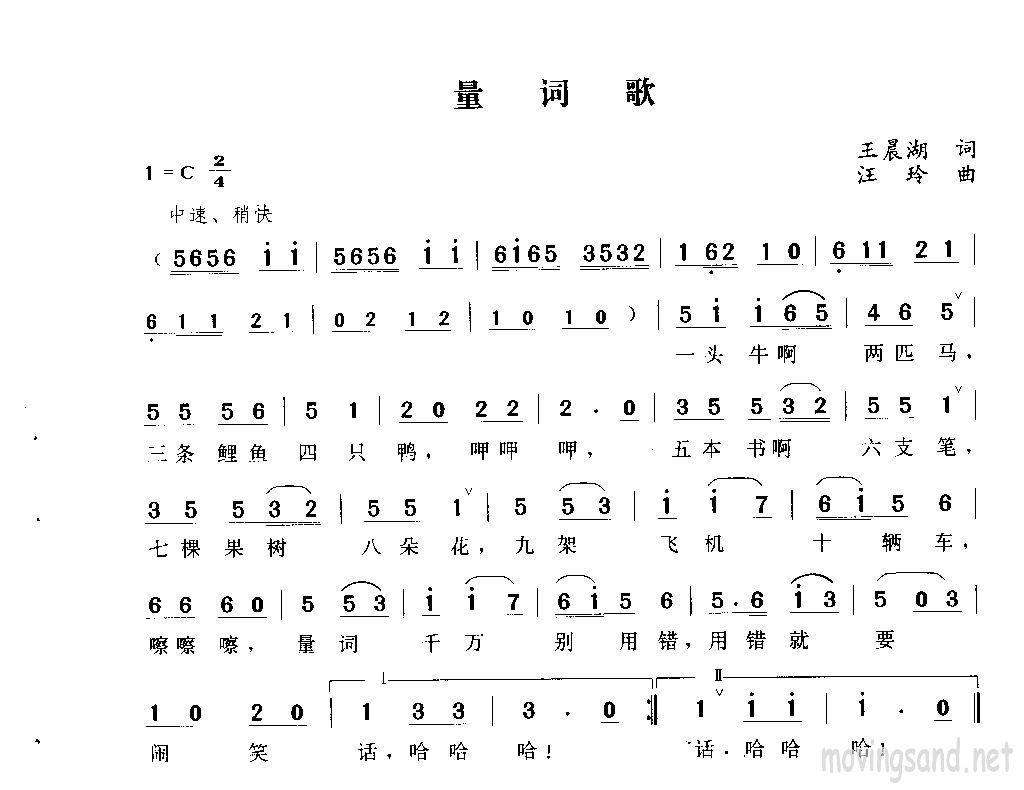 量 词 歌
王晨湖 词
1 = C 2/4
汪 玲 曲
中速、稍快
( 5656 i i | 5656 i i | 6i65 3532 | 1 62 1 0 | 6 11 2 1 |
6 1 1 2 1 | 0 2 1 2 | 1 0 1 0 ) | 5 i i 6 5 | 4 6 5 ∨ |
一 头 牛 啊 两 匹 马，
5 5 5 6 | 5 1 | 2 0 2 2 | 2 · 0 | 3 5 5 3 2 | 5 5 1 ∨ |
三 条 鲤 鱼 四 只 鸭，呷 呷 呷，五 本 书 啊 六 支 笔，
3 5 5 3 2 | 5 5 1 ∨ | 5 5 3 | i i 7 | 6 i 5 6 |
七 棵 果 树 八 朵 花，九 架 飞 机 十 辆 车，
6 6 6 0 | 5 5 3 | i i 7 | 6 i 5 6 | 5 · 6 i 3 | 5 0 3 |
嚓 嚓 嚓，量 词 千 万 别 用 错，用 错 就 要
I II
1 0 2 0 | 1 3 3 | 3 · 0 :| 1 ∨ i i | i · 0 ‖
闹 笑 话，哈 哈 哈！ 话．哈 哈 哈！
movingsand.net